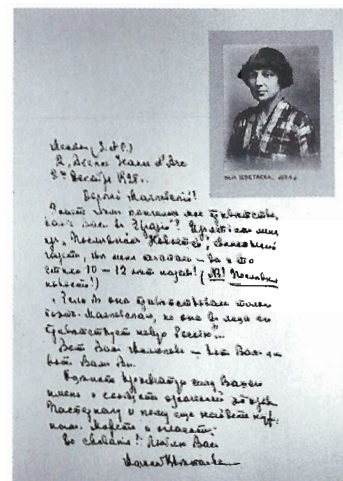 М. И. ЦВЕТАЕВА, 1924 г.
Медон (S. et O.)
2, Avenue Jeanne d'Arc
3го декабря 1928 г.
Дорогой Маяковский!
Знаете чем кончилось мое приветствование
Вас в «Евразии»? Изъятием меня
из «Последних Новостей», единственной
газеты, где меня печатали — да и то
стихи 10 — 12 лет назад! (NB! Последние
новости!)
«Если б она приветствовала только
поэта-Маяковского, но она в лице его
приветствует новую Россию»...
Вот Вам Милюков — вот Вам я —
вот Вам Вы.
Оцените
имени
Пастернаку и
До свидания! Люблю Вас
Марина Цветаева